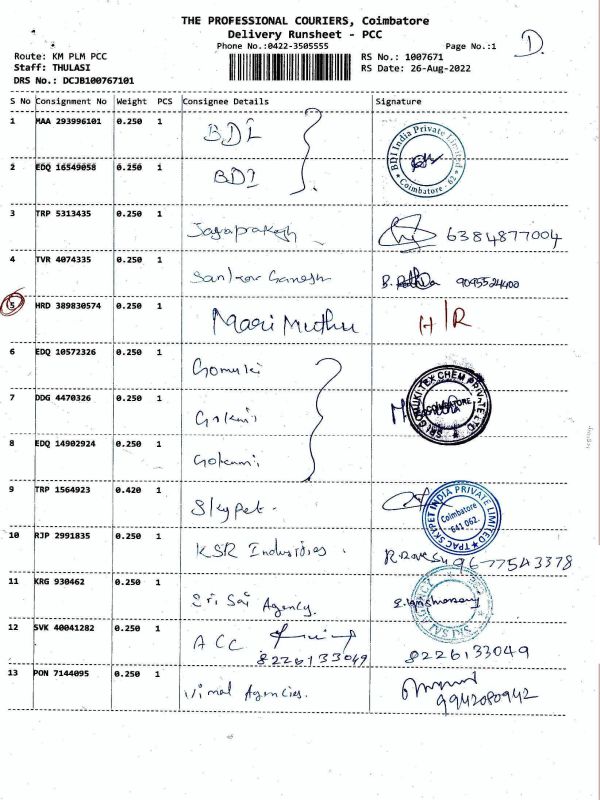 THE PROFESSIONAL COURIERS, Coimbatore
Delivery Runsheet - PCC
Phone No.:0422-3505555
Page No.:1
D.
Route: KM PLM PCC
RS No.: 1007671
Staff: THULASI
RS Date: 26-Aug-2022
DRS No.: DCJB100767101
S No Consignment No Weight PCS Consignee Details Signature
1 MAA 293996101 0.250 1 BDI
BDI India Private Limited * Coimbatore - 62 *
2 EDQ 16549058 0.250 1 BDI
3 TRP 5313435 0.250 1 Jayaprakash 6384877004
4 TVR 4074335 0.250 1 Sankar Ganesh B. 9095524400
5 HRD 389830574 0.250 1 Maari Muthu H/R
6 EDQ 10572326 0.250 1 Gomuki
SRI GOMUKI TEX CHEM PRIVATE LTD COIMBATORE
7 DDG 4470326 0.250 1
8 EDQ 14902924 0.250 1
9 TRP 1564923 0.420 1 Skypet.
TPAC SKYPET INDIA PRIVATE LIMITED Coimbatore 641 062.
10 RJP 2991835 0.250 1 KSR Industries. 9677543378
11 KRG 930462 0.250 1 Sri Sai Agency.
SRI SAI AGENCY
12 SVK 40041282 0.250 1 ACC 8226133049 8226133049
13 PON 7144095 0.250 1 Vimal Agencies. 9942080942